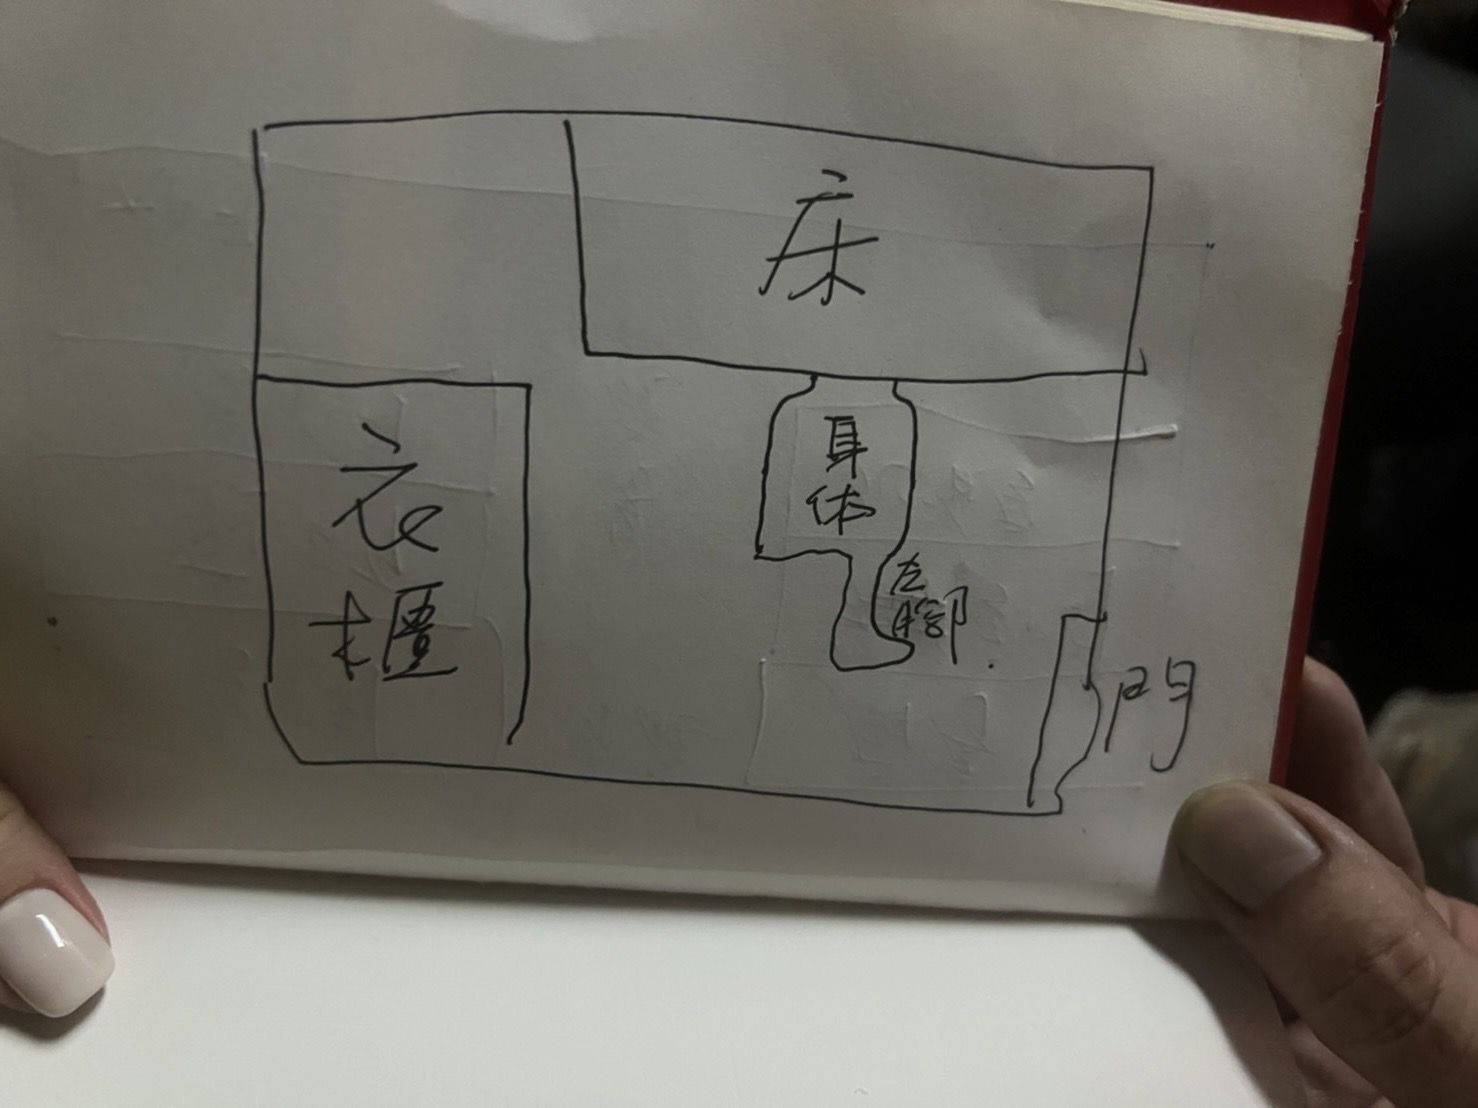 床
身
体
衣
櫃
左
腳
門